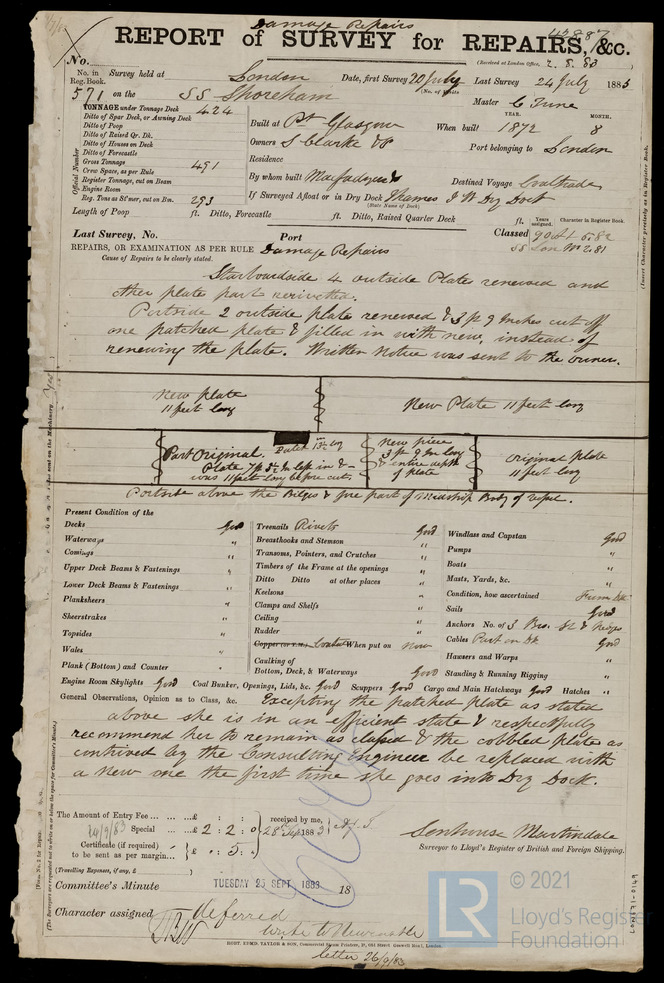 Damage Repairs
REPORT of SURVEY for REPAIRS, &c. 42887
No. (Received at London Office, 2. 8. 83
No. in Reg. Book. Survey held at London Date, first Survey 20 July Last Survey 24 July 1883
(No. of Visits
571 on the SS Shoreham Master
TONNAGE under Tonnage Deck 424
Ditto of Spar Deck, or Awning Deck
Ditto of Poop
Ditto of Raised Qr. Dk.
Ditto of Houses on Deck
Ditto of Forecastle
Gross Tonnage 491
Crew Space, as per Rule
Register Tonnage, cut on Beam
Engine Room
Reg. Tons as St'mer, cut on Bm. 293
Official Number
Built at Pt Glasgow When built YEAR. 1872 MONTH. 8
Owners S Clarke & Co Port belonging to London
Residence
By whom built Destined Voyage Coal trade
If Surveyed Afloat or in Dry Dock Thames I W Dry Dock
(State Name of Dock)
Length of Poop ft. Ditto, Forecastle ft. Ditto, Raised Quarter Deck ft. Years assigned. Character in Register Book.
Last Survey, No. Port Classed
REPAIRS, OR EXAMINATION AS PER RULE Damage Repairs
Cause of Repairs to be clearly stated.
(Insert Character precisely as in Register Book.)
Starboardside 4 outside Plates renewed and
other plate part rerivetted.
Portside 2 outside plates renewed & 3 ft 9 Inches cut off
one patched plate & filled in with new, instead of
renewing the plate. Written Notice was sent to the owner.
New plate
11 feet long
New Plate 11 feet long
Part Original
Plate 7 ft 3½ In left in &
was 11 feet long before cut.
New piece
3 ft 9 In long
& entire depth
of plate
Original plate
11 feet long
Portside above the Bilges & fore part of Midship Body of vessel.
Present Condition of the
Decks Good
Waterways "
Comings "
Upper Deck Beams & Fastenings "
Lower Deck Beams & Fastenings "
Planksheers "
Sheerstrakes "
Topsides "
Wales "
Plank (Bottom) and Counter "
Treenails Rivets Good
Breasthooks and Stemson "
Transoms, Pointers, and Crutches "
Timbers of the Frame at the openings "
Ditto Ditto at other places "
Keelsons "
Clamps and Shelfs "
Ceiling "
Rudder "
Copper (or Y.M.) Coated When put on now
Caulking of
Bottom, Deck, & Waterways Good
Windlass and Capstan Good
Pumps "
Boats "
Masts, Yards, &c. "
Condition, how ascertained From Dk
Sails Good
Anchors No. of 3 Bro. St &
Cables Part on Dk Good
Hausers and Warps "
Standing & Running Rigging "
Engine Room Skylights Good Coal Bunker, Openings, Lids, &c. Good Scuppers Good Cargo and Main Hatchways Good Hatches "
General Observations, Opinion as to Class, &c. Excepting the patched plate as stated
above she is in an efficient state & respectfully
recommend her to remain as classed & the cobbled plate as
contrived by the Consulting Engineer be replaced with
a new one the first time she goes into Dry Dock.
The Amount of Entry Fee ... ...£ : : received by me,
14/9/83 Special ... ...£ 2 : 2 : 0 1883
Certificate (if required)
to be sent as per margin... £ : 5 :
(Travelling Expenses, if any, £ )
Senhouse Martindale
Surveyor to Lloyd's Register of British and Foreign Shipping.
Committee's Minute TUESDAY 25 SEPT 1883 18
Character assigned deferred
write to Newcastle
letter 26/9/83
LON571-0149
LR © 2021
Lloyd's Register
Foundation